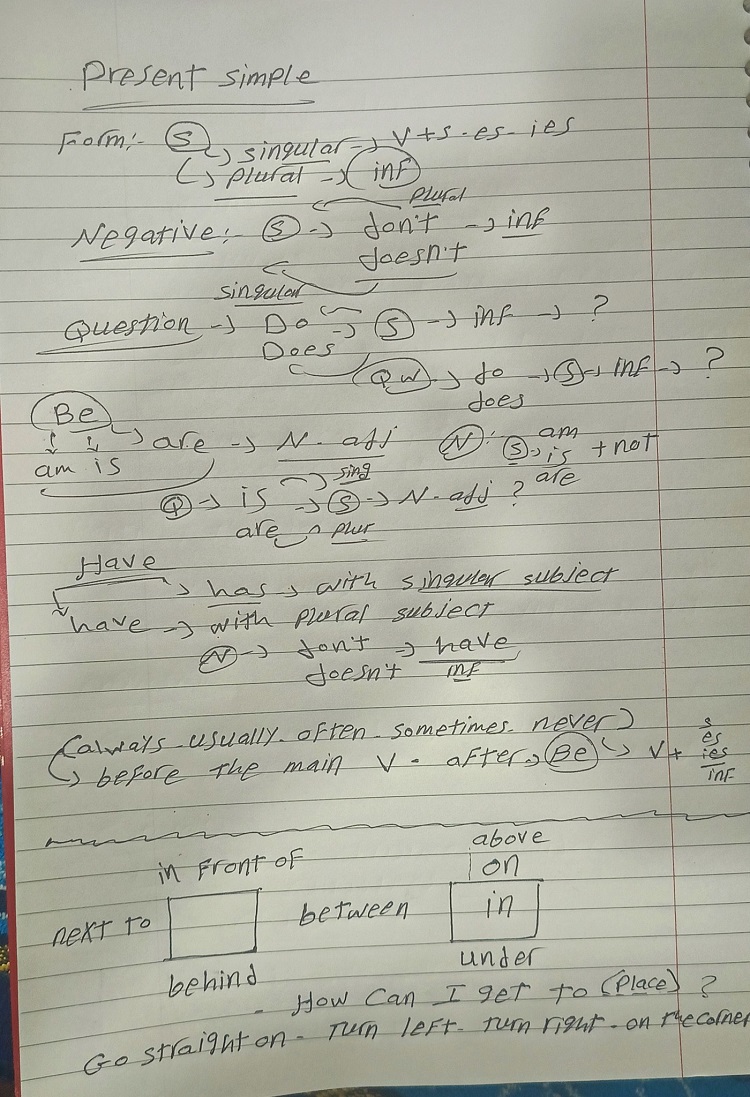 Present simple
Form:- S → singular → V+s-es-ies
→ plural → inf
plural
Negative:- S → don't → inf
doesn't
singular
Question → Do → S → inf → ?
Does
QW → do → S → inf → ?
does
Be → are → N-adj
am is
N: S → am is are + not
sing
Q → is → S → N-adj ?
are plur
Have
→ has → with singular subject
have → with plural subject
N → don't → have
doesn't inf
(always-usually-often-sometimes-never)
→ before the main V - after → Be → V + s es ies inf
above
in front of on
next to between in
behind under
- How can I get to (place) ?
Go straight on - Turn left - Turn right - on the corner